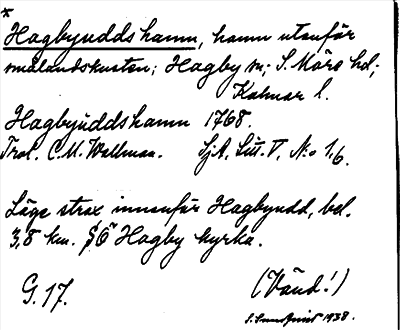 *
Hagbyuddshamn, hamn utanför
smålandskusten; Hagby sn; S. Möre hd;
Kalmar l.
Hagbyuddshamn 1768.
Trol. C. M. Wallman. Sjk, Litt. V, N:o 1,6.
Läge strax innanför Hagbyudd, bel.
3,8 km. SÖ Hagby kyrka.
G. 17. (Vänd!)
1938.